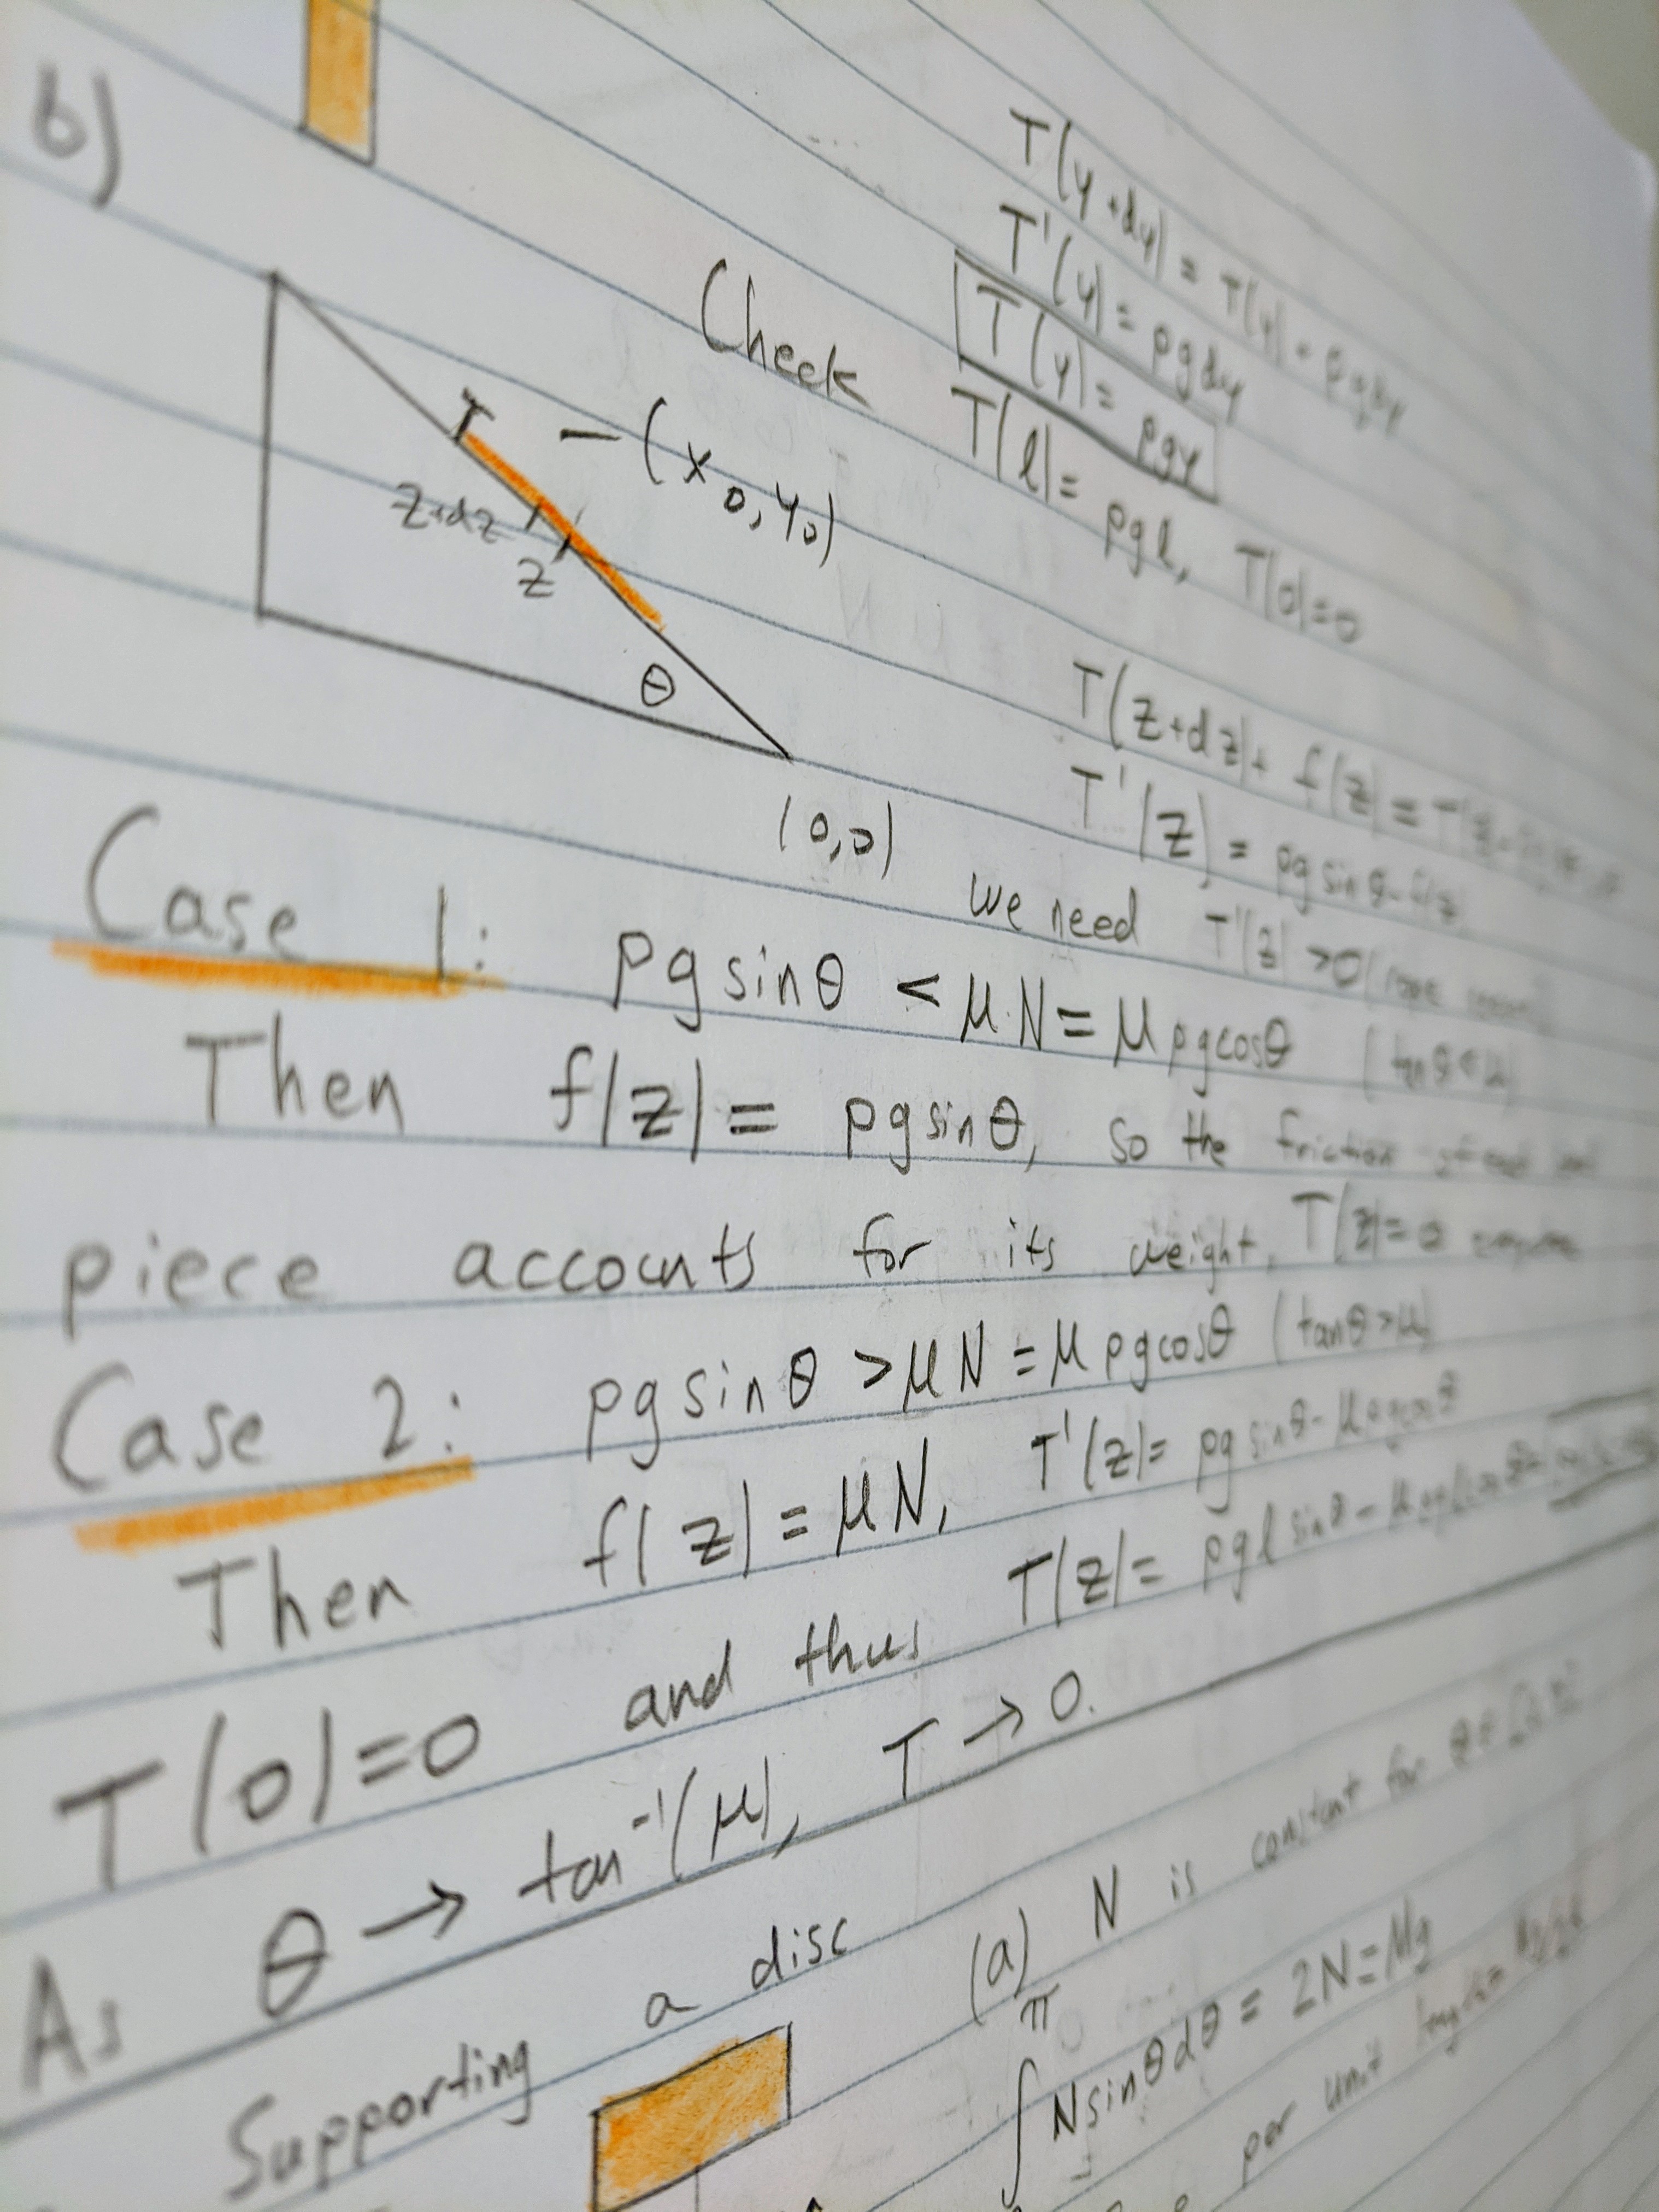 b)
T(y+dy) = T(y) + ρgdy
T'(y) = ρgdy
T(y) = ρgy
Check T(l) = ρgl, T(0)=0
T – (x₀, y₀)
z+dz
z
θ
(0,0)
T(z+dz) + f(z) = T(z)
T'(z) = ρg sinθ - f(z)
we need T'(z) >0 (rope
Case 1: ρg sinθ < μN = μρgcosθ (tanθ<μ)
Then f(z) = ρg sinθ, so the friction
piece accounts for its weight, T(z)=0
Case 2: ρg sinθ > μN = μρgcosθ (tanθ>μ)
Then f(z) = μN, T'(z) = ρg sinθ - μρgcosθ
T(0)=0 and thus T(z) = ρgl sinθ - μρgl cosθ
As θ → tan⁻¹(μ), T → 0.
Supporting a disc (a) N is constant for θ ∈
∫ π N sinθ dθ = 2N = Mg
per unit length